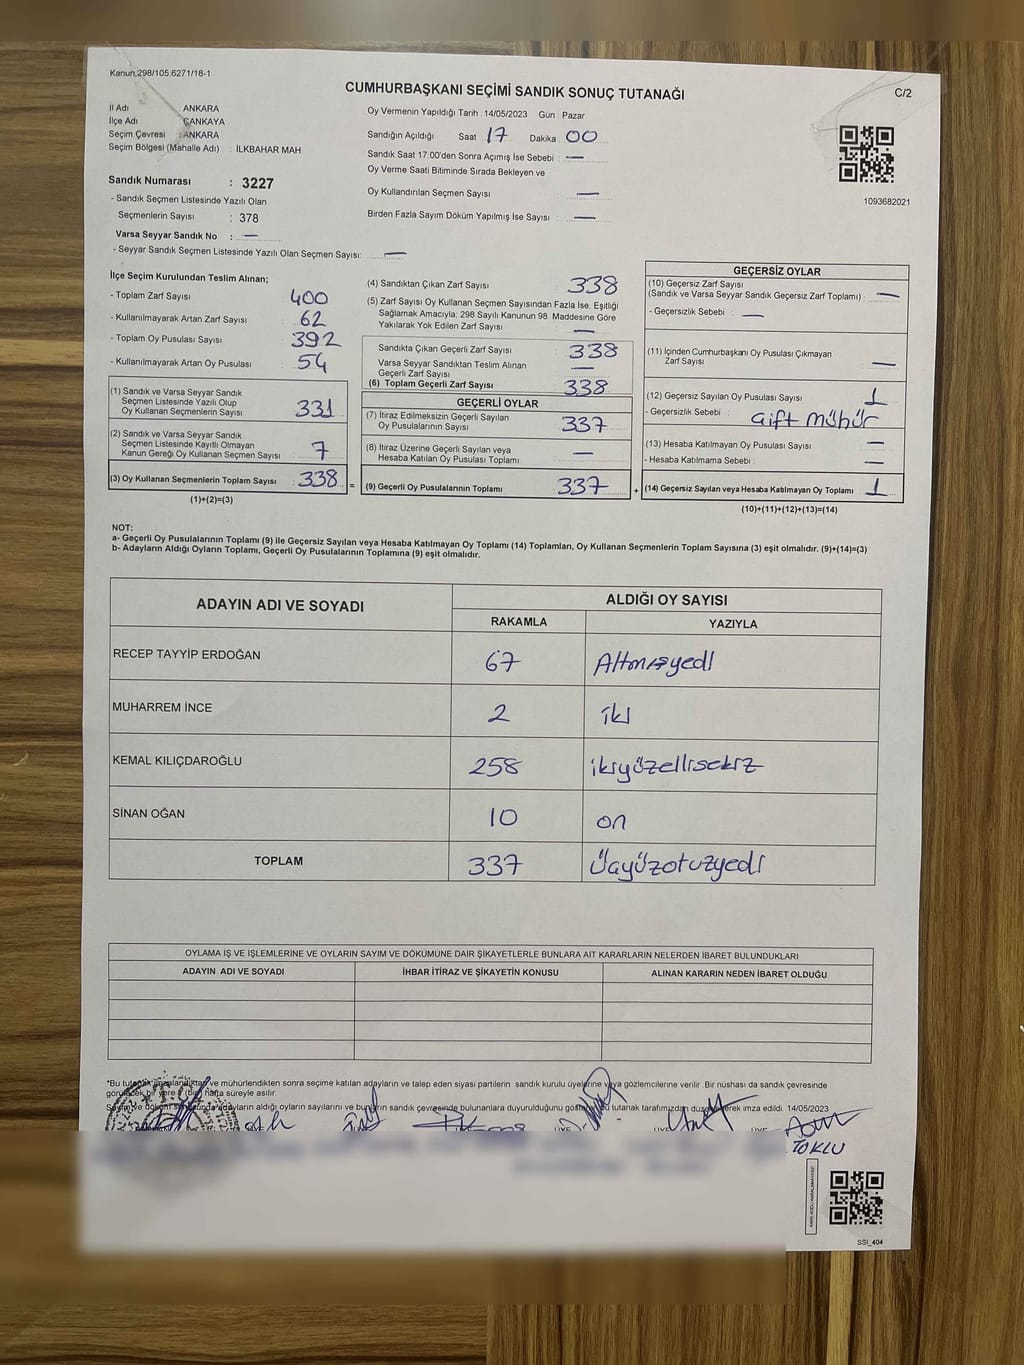 Kanun:298/105,6271/18-1
CUMHURBAŞKANI SEÇİMİ SANDIK SONUÇ TUTANAĞI
C/2
İl Adı : ANKARA
İlçe Adı ÇANKAYA
Seçim Çevresi : ANKARA
Seçim Bölgesi (Mahalle Adı) : İLKBAHAR MAH.
Oy Vermenin Yapıldığı Tarih : 14/05/2023 Gün : Pazar
Sandığın Açıldığı Saat 17 Dakika 00
Sandık Saat 17:00'den Sonra Açımış İse Sebebi : —
Oy Verme Saati Bitiminde Sırada Bekleyen ve
Oy Kullandırılan Seçmen Sayısı —
Birden Fazla Sayım Döküm Yapılmış İse Sayısı —
1093682021
Sandık Numarası : 3227
- Sandık Seçmen Listesinde Yazılı Olan
Seçmenlerin Sayısı : 378
Varsa Seyyar Sandık No : —
- Seyyar Sandık Seçmen Listesinde Yazılı Olan Seçmen Sayısı: —
İlçe Seçim Kurulundan Teslim Alınan;
- Toplam Zarf Sayısı 400
- Kullanılmayarak Artan Zarf Sayısı 62
- Toplam Oy Pusulası Sayısı 392
- Kullanılmayarak Artan Oy Pusulası 54
(1) Sandık ve Varsa Seyyar Sandık
Seçmen Listesinde Yazılı Olup
Oy Kullanan Seçmenlerin Sayısı 331
(2) Sandık ve Varsa Seyyar Sandık
Seçmen Listesinde Kayıtlı Olmayan
Kanun Gereği Oy Kullanan Seçmen Sayısı 7
(3) Oy Kullanan Seçmenlerin Toplam Sayısı 338
(1)+(2)=(3)
(4) Sandıktan Çıkan Zarf Sayısı 338
(5) Zarf Sayısı Oy Kullanan Seçmen Sayısından Fazla İse, Eşitliği
Sağlamak Amacıyla; 298 Sayılı Kanunun 98. Maddesine Göre
Yakılarak Yok Edilen Zarf Sayısı —
Sandıkta Çıkan Geçerli Zarf Sayısı 338
Varsa Seyyar Sandıktan Teslim Alınan
Geçerli Zarf Sayısı —
(6) Toplam Geçerli Zarf Sayısı 338
GEÇERLİ OYLAR
(7) İtiraz Edilmeksizin Geçerli Sayılan
Oy Pusulalarının Sayısı 337
(8) İtiraz Üzerine Geçerli Sayılan veya
Hesaba Katılan Oy Pusulası Toplamı —
= (9) Geçerli Oy Pusulalarının Toplamı 337
GEÇERSİZ OYLAR
(10) Geçersiz Zarf Sayısı
(Sandık ve Varsa Seyyar Sandık Geçersiz Zarf Toplamı) : —
- Geçersizlik Sebebi : —
(11) İçinden Cumhurbaşkanı Oy Pusulası Çıkmayan
Zarf Sayısı —
(12) Geçersiz Sayılan Oy Pusulası Sayısı 1
- Geçersizlik Sebebi : Çift mühür
(13) Hesaba Katılmayan Oy Pusulası Sayısı —
- Hesaba Katılmama Sebebi : —
+ (14) Geçersiz Sayılan veya Hesaba Katılmayan Oy Toplamı 1
(10)+(11)+(12)+(13)=(14)
NOT:
a- Geçerli Oy Pusulalarının Toplamı (9) ile Geçersiz Sayılan veya Hesaba Katılmayan Oy Toplamı (14) Toplamları, Oy Kullanan Seçmenlerin Toplam Sayısına (3) eşit olmalıdır. (9)+(14)=(3)
b- Adayların Aldığı Oyların Toplamı, Geçerli Oy Pusulalarının Toplamına (9) eşit olmalıdır.
ADAYIN ADI VE SOYADI ALDIĞI OY SAYISI
RAKAMLA YAZIYLA
RECEP TAYYİP ERDOĞAN 67 Altmışyedi
MUHARREM İNCE 2 iki
KEMAL KILIÇDAROĞLU 258 ikiyüzellisekiz
SİNAN OĞAN 10 on
TOPLAM 337 Üçyüzotuzyedi
OYLAMA İŞ VE İŞLEMLERİNE VE OYLARIN SAYIM VE DÖKÜMÜNE DAİR ŞİKAYETLERLE BUNLARA AİT KARARLARIN NELERDEN İBARET BULUNDUKLARI
ADAYIN ADI VE SOYADI İHBAR İTİRAZ VE ŞİKAYETİN KONUSU ALINAN KARARIN NEDEN İBARET OLDUĞU
*Bu ve mühürlendikten sonra seçime katılan adayların ve talep eden siyasi partilerin sandık kurulu üyelerine veya gözlemcilerine verilir. Bir nüshası da sandık çevresinde
hafta süreyle asılır.
adayların aldığı oyların sayılarını ve bunların sandık çevresinde bulunanlara duyurulduğunu tutanak tarafımızdan imza edildi. 14/05/2023
TOKLU
SSI_404